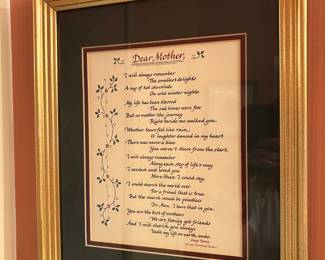 Dear Mother,
I will always remember
The smallest delights
A cup of hot chocolate
On cold winter nights.
My life has been blessed
The sad times were few
But no matter the journey
Right beside me walked you.
Whether tears fell like rain,
Or laughter danced in my heart
There was never a time
You weren't there from the start.
I will always remember
Along each step of life's way
I needed and loved you
More than I could say.
I could search the world over
For a friend that is true
But the search would be pointless
For, Mom, I have that in you.
You are the best of mothers
We are family yet friends
And I will cherish you always
Until my life on earth ends.